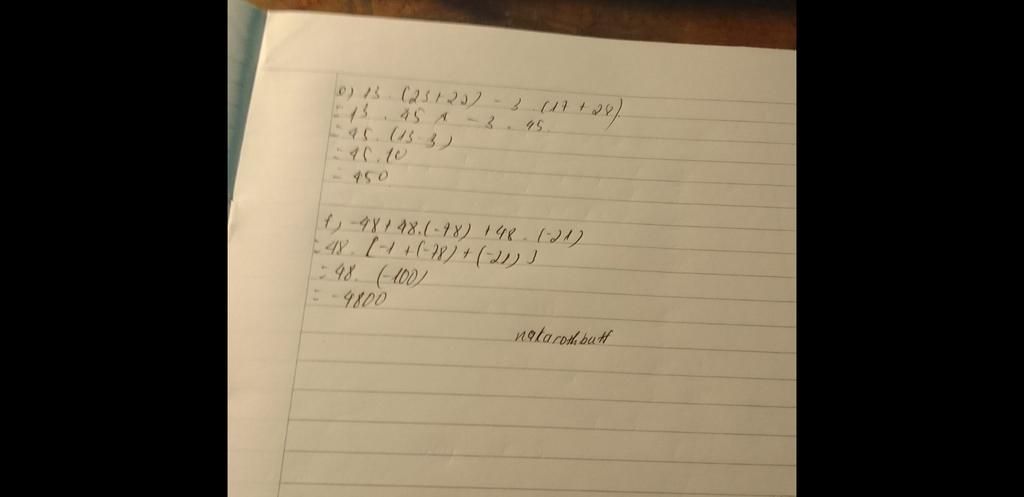 e) 13 . (23+22) - 3 . (17 + 28)
= 13 . 45 - 3 . 45
= 45 . (13-3)
= 45 . 10
= 450
f) -48+48.(-78) +48 . (-21)
= 48 . [-1 +(-78) + (-21)]
= 48 . (-100)
= -4800